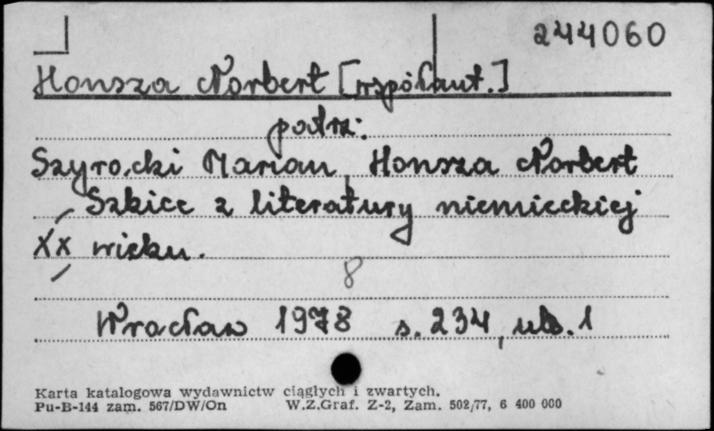 244060
Honsza Norbert [współaut.]
patrz:
Szyrocki Marian, Honsza Norbert
Szkice z literatury niemieckiej
XX wieku.
8
Wrocław 1978 s. 234, nlb. 1
Karta katalogowa wydawnictw ciągłych i zwartych.
Pu-B-144 zam. 567/DW/On W.Z.Graf. Z-2, Zam. 502/77, 6 400 000